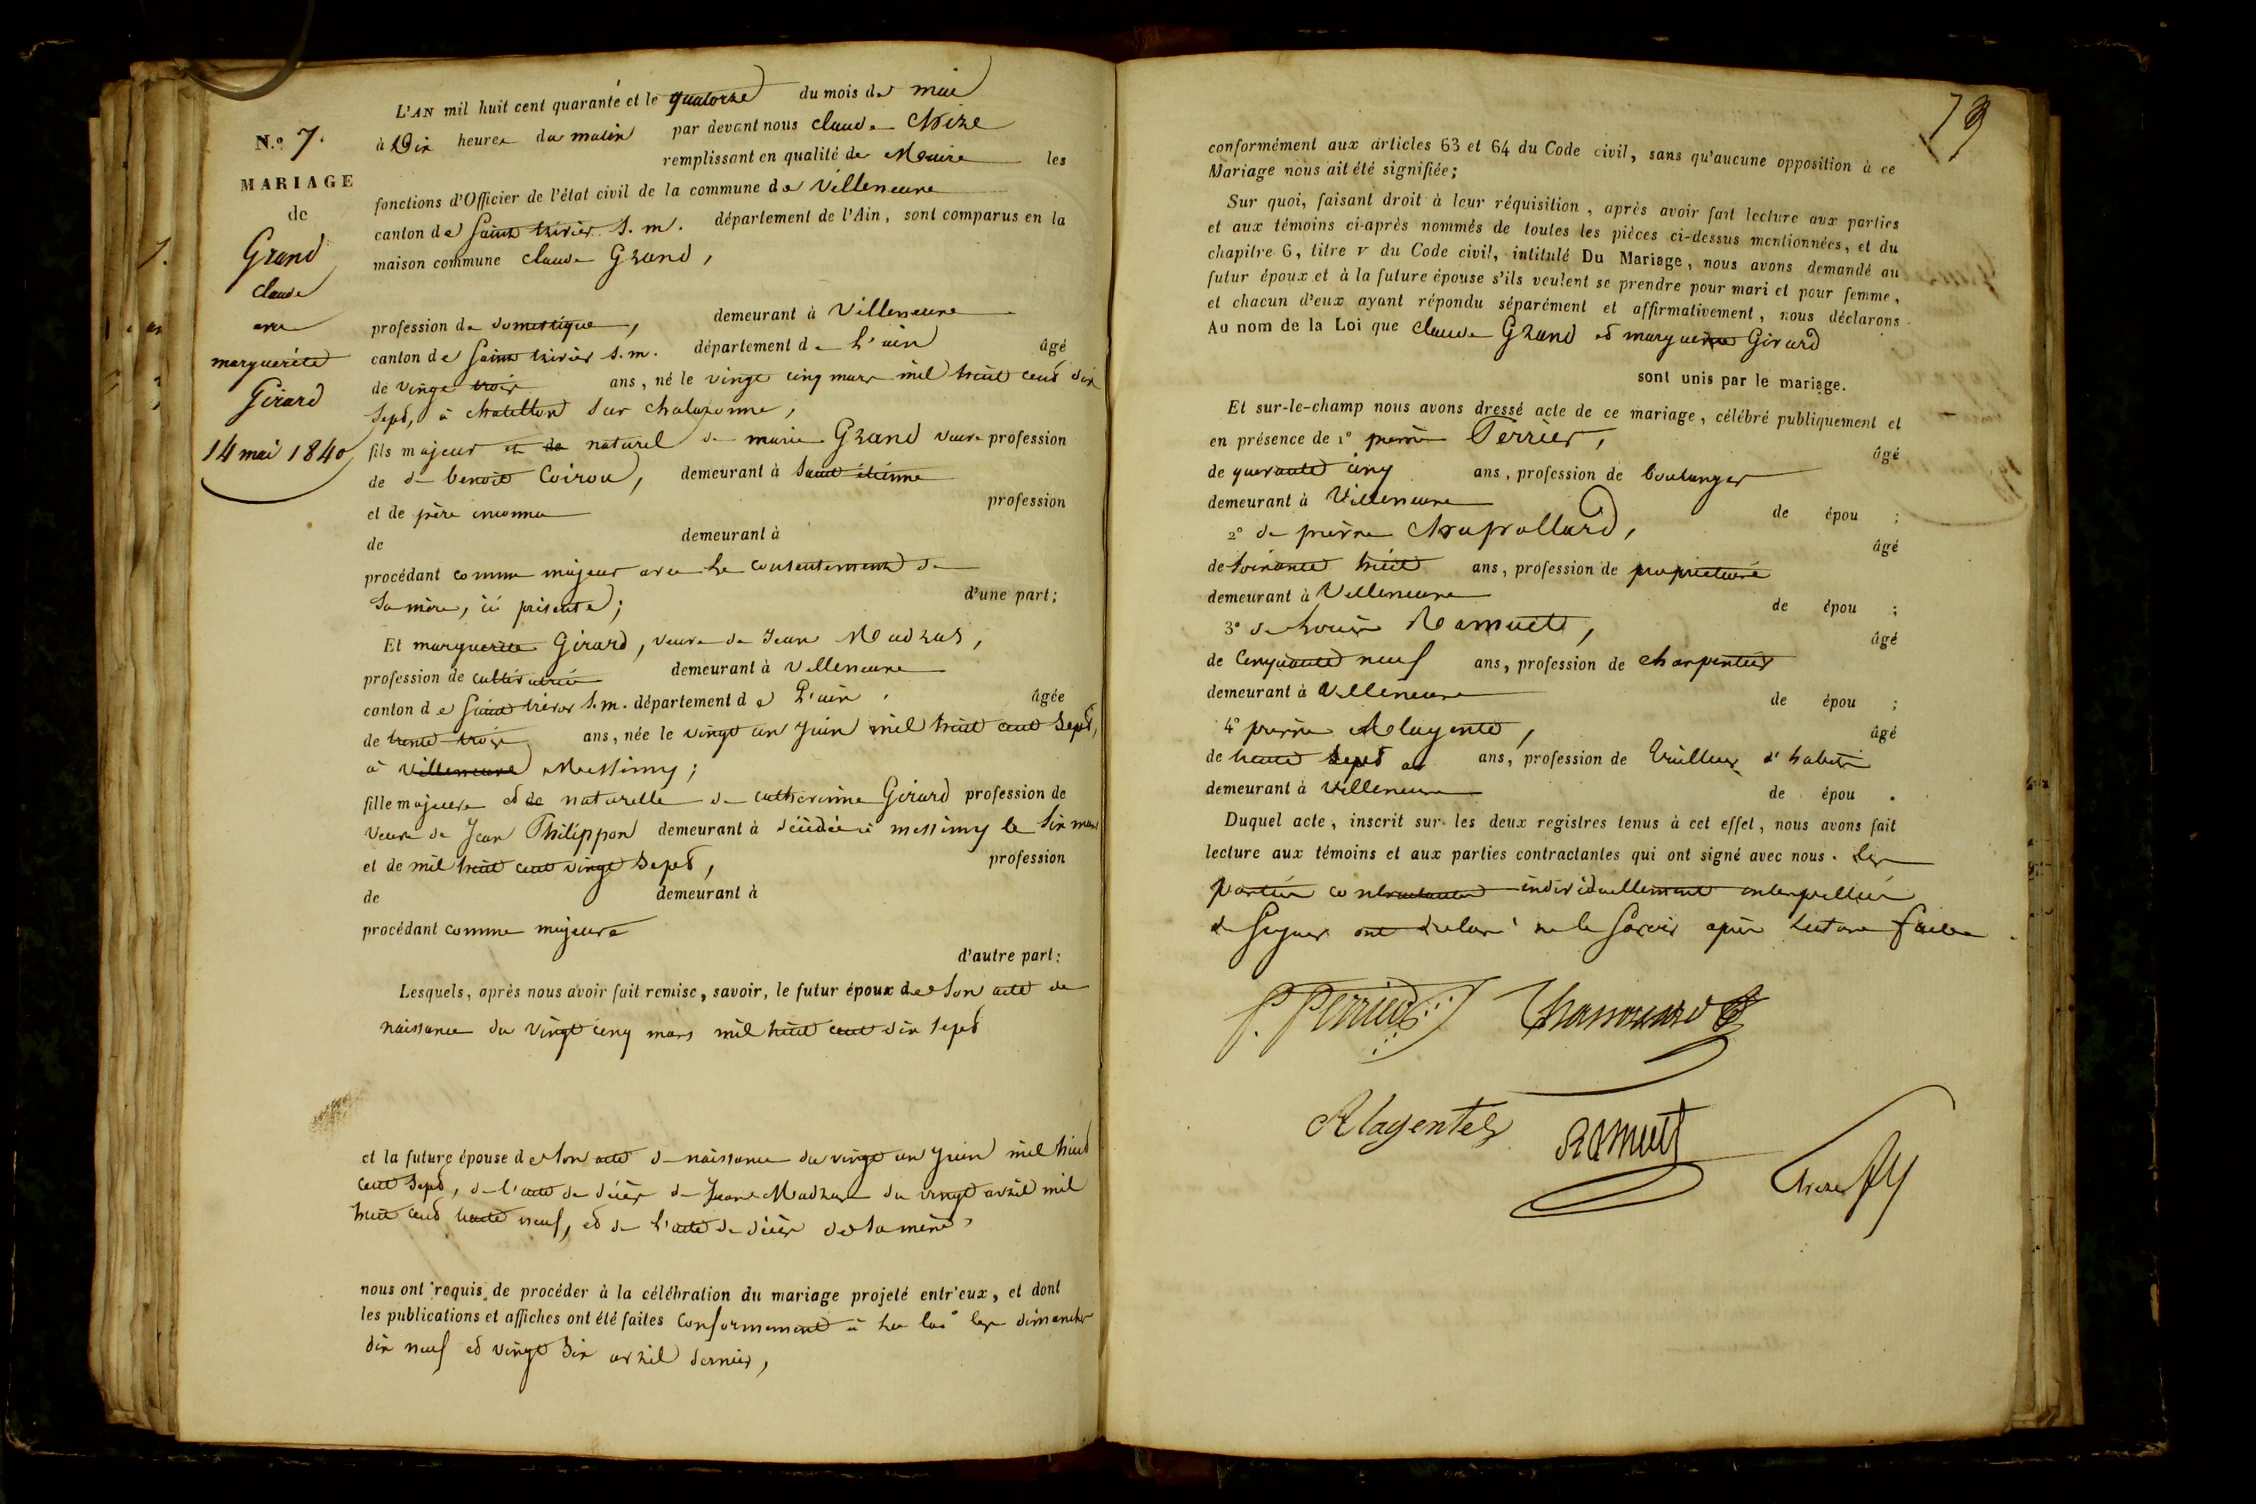 N.o 7.
MARIAGE
de
Grand
claude
avec
marguerite
Girard
14 mai 1840
L'AN mil huit cent quarante et le quatorze du mois de mai
à Dix heures du matin par devant nous claude Chize
remplissant en qualité de Maire les
fonctions d'Officier de l'état civil de la commune de Villeneuve
canton de Saint trivier s. m. département de l'Ain, sont comparus en la
maison commune claude Grand,
profession de domestique, demeurant à Villeneuve
canton de Saint trivier s. m. département de L'ain âgé
de vingt trois ans, né le vingt cinq mars mil huit cent dix
sept, à chatillon sur chalaronne,
fils majeur et de naturel de marie Grand veuve profession
de de benoit Coirou, demeurant à Saint étienne
et de père inconnu profession
de demeurant à
procédant comme majeur avec le consentement de
sa mère, ici présente; d'une part;
Et marguerite Girard, veuve de Jean Madras,
profession de cultivatrice demeurant à Villeneuve
canton de Saint trivier s. m. département de L'ain âgée
de trente trois ans, née le vingt un juin mil huit cent sept,
à villeneuve Messimy;
fille majeure et de naturelle de catherinne Girard profession de
veuve de Jean Philippon demeurant à décédée à messimy le six mars
et de mil huit cent vingt sept, profession
de demeurant à
procédant comme majeure
d'autre part:
Lesquels, après nous avoir fait remise, savoir, le futur époux de son acte de
naissance du vingt cinq mars mil huit cent dix sept
et la future épouse de son acte de naissance du vingt un juin mil huit
cent sept, de l'acte de décès de Jean Madras du vingt avril mil
huit cent trente neuf, et de l'acte de décès de sa mère,
nous ont requis de procéder à la célébration du mariage projeté entr'eux, et dont
les publications et affiches ont été faites conformément à la loi les dimanches
dix neuf et vingt six avril dernier,
79
conformément aux articles 63 et 64 du Code civil, sans qu'aucune opposition à ce
Mariage nous ait été signifiée;
Sur quoi, faisant droit à leur réquisition, après avoir fait lecture aux parties
et aux témoins ci-après nommés de toutes les pièces ci-dessus mentionnées, et du
chapitre 6, titre V du Code civil, intitulé Du Mariage, nous avons demandé au
futur époux et à la future épouse s'ils veulent se prendre pour mari et pour femme,
et chacun d'eux ayant répondu séparément et affirmativement, nous déclarons
Au nom de la Loi que claude Grand et marguerite Girard
sont unis par le mariage.
Et sur-le-champ nous avons dressé acte de ce mariage, célébré publiquement et
en présence de 1° pierre Perrier, âgé
de quarante cinq ans, profession de boulanger
demeurant à Villeneuve de épou ;
2° de pierre âgé
de soixante huit ans, profession de propriétaire
demeurant à Villeneuve de épou ;
3° de Louis Ramuet, âgé
de cinquante neuf ans, profession de charpentier
demeurant à Villeneuve de épou ;
4° pierre Alagente, âgé
de trente sept ans, profession de tailleur d'habits
demeurant à Villeneuve de épou .
Duquel acte, inscrit sur les deux registres tenus à cet effet, nous avons fait
lecture aux témoins et aux parties contractantes qui ont signé avec nous. Les
parties contractantes individuellement interpellées
de signer ont déclaré ne le savoir après lecture faite
P. Perrier
Alagente
Ramuet